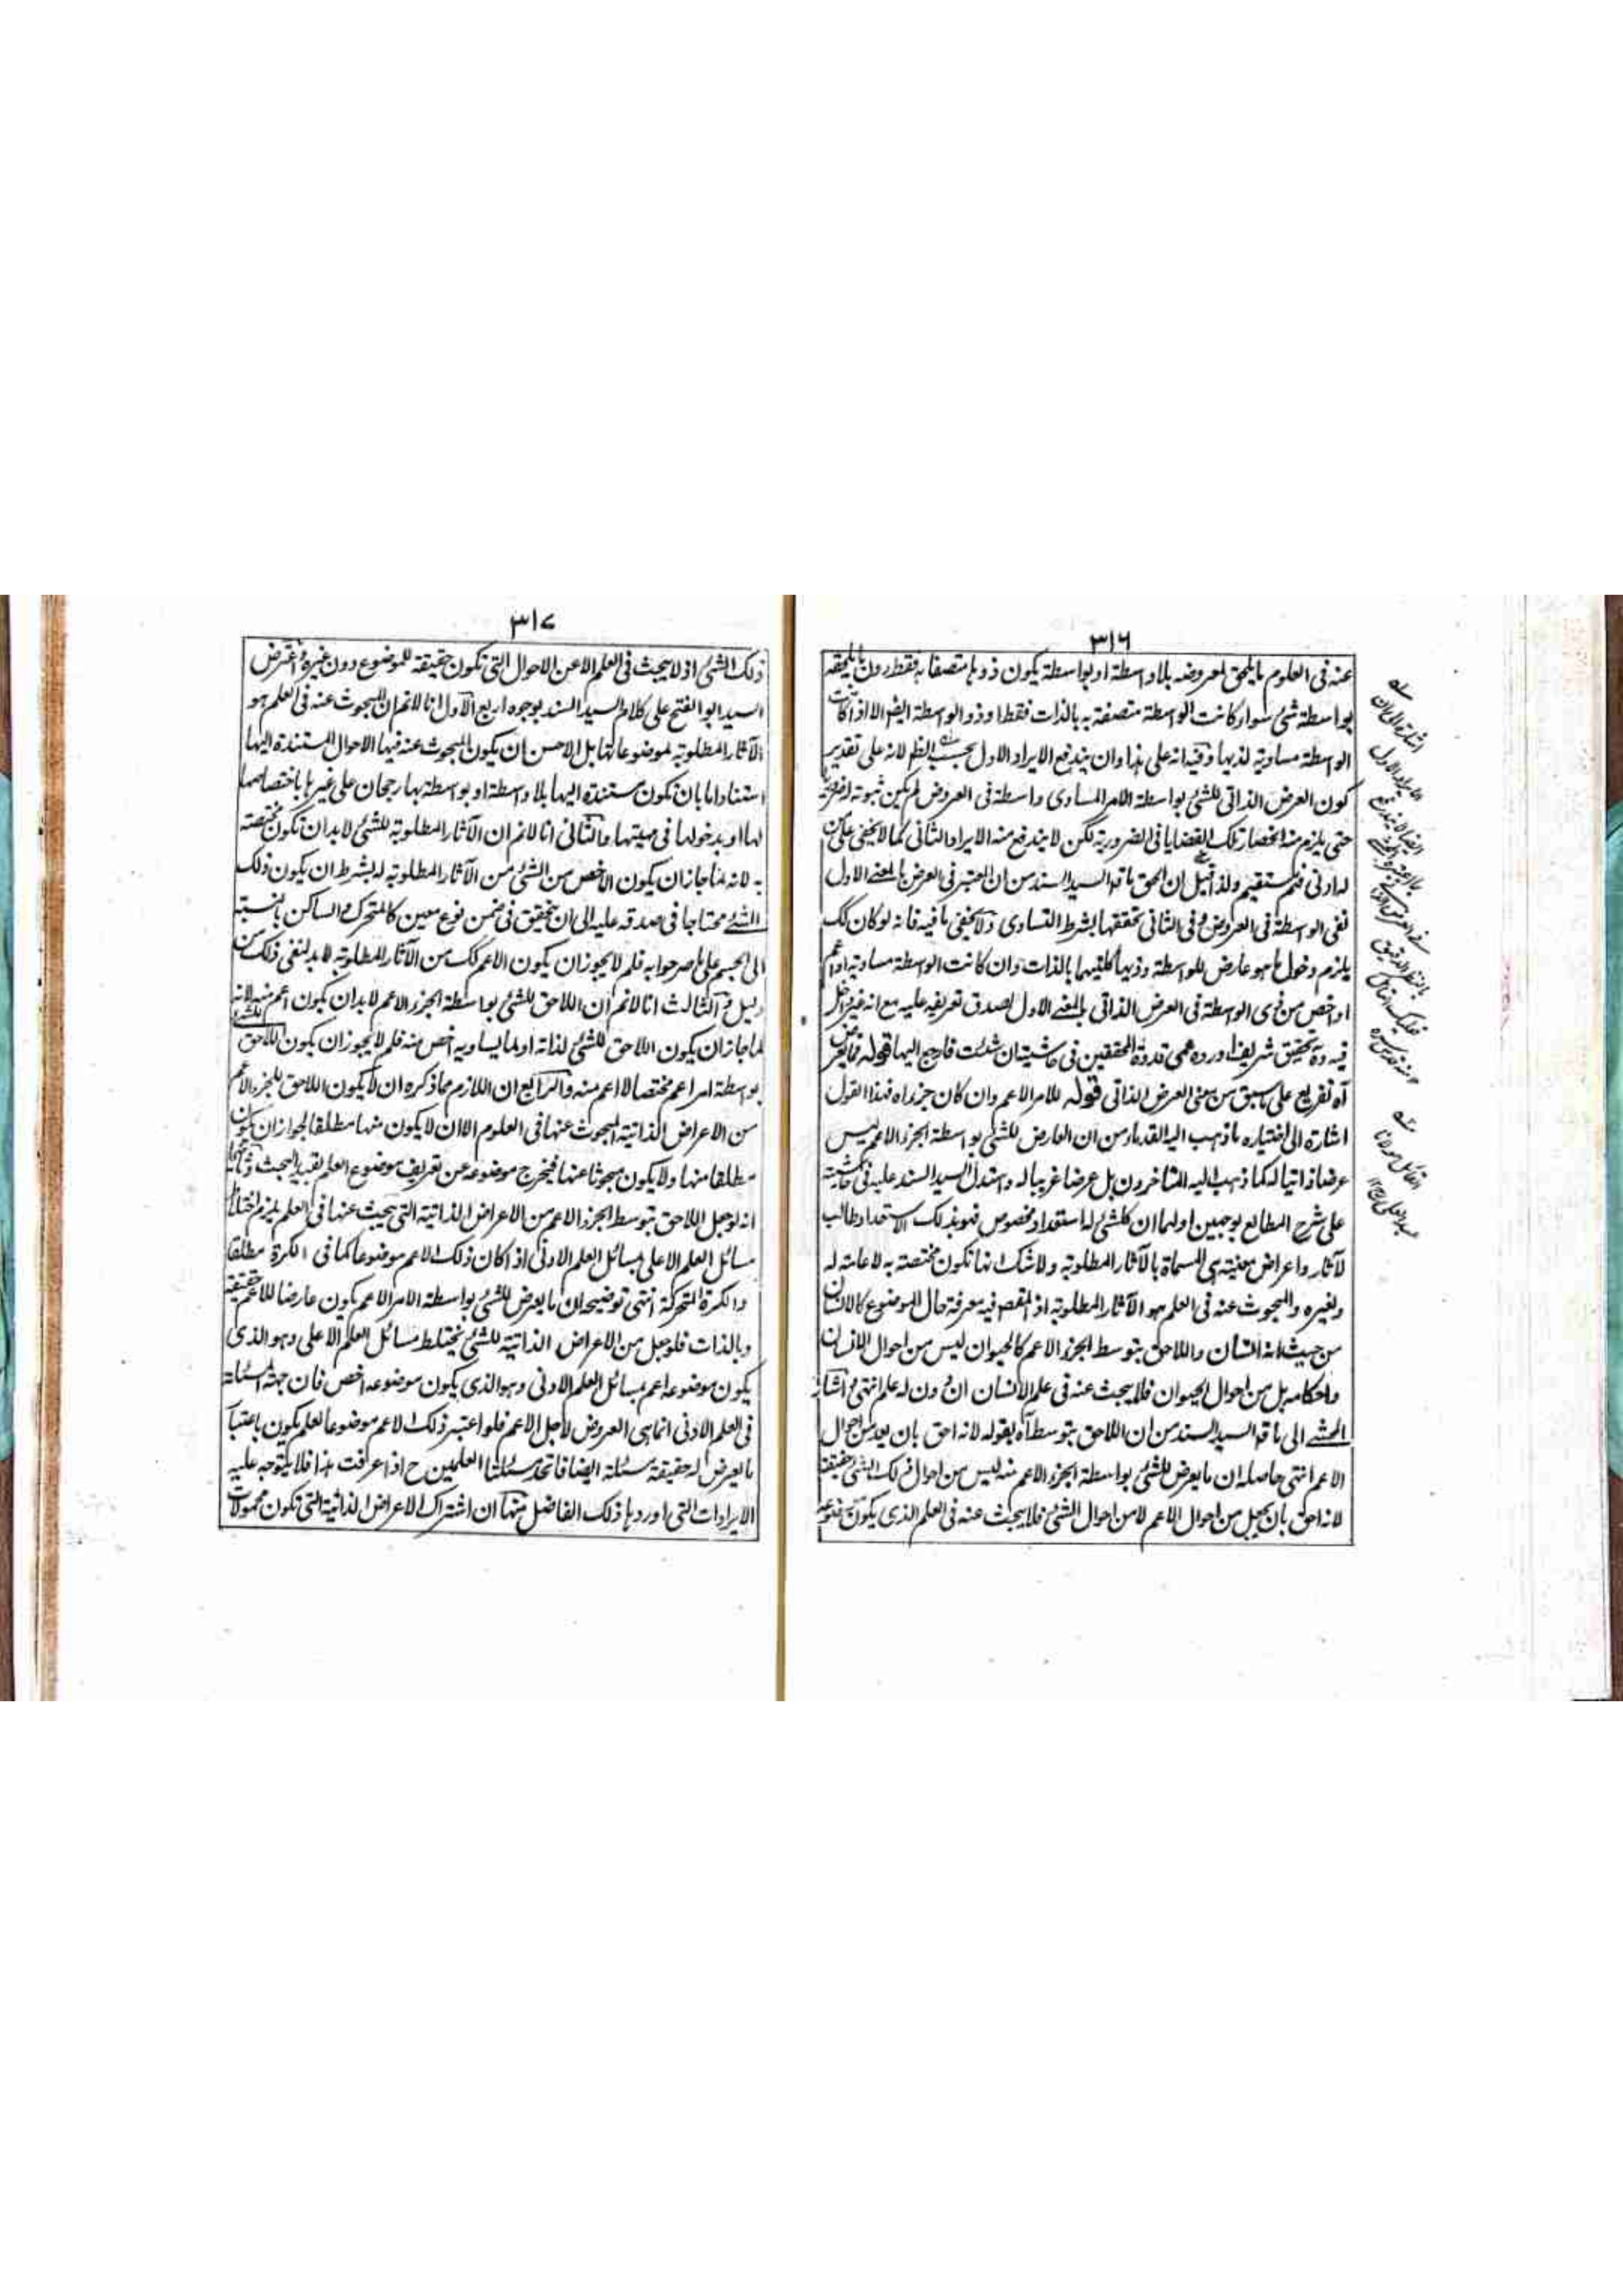 ٣١٦
عنه فى العلوم ما يلحق لمعروضه بلا واسطة او بواسطة يكون ذو ها متصفا به فقط دون ما يلحقه
بواسطة شئ سواء كانت الواسطة متصفة به بالذات فقط او ذو الواسطة ايضا الا اذا كانت
الواسطة مساوية لذيها وفيه انه على هذا وان يندفع الايراد الاول بحسب الظ لانه على تقدير
كون العرض الذاتى للشئ بواسطة الامر المساوى واسطة فى العروض لم يكن ثبوته له ضروريا
حتى يلزم منه انحصار تلك القضايا فى الضرورية لكن لا يندفع منه الايراد الثانى كما لا يخفى على من
له ادنى فهم مستقيم ولذا قيل ان الحق ما قه السيد السند من ان المعتبر فى العرض بالمعنى الاول
نفى الواسطة فى العروض وفى الثانى تحققها بشرط التساوى ولا يخفى ما فيه فانه لو كان كك
يلزم دخول ما هو عارض للواسطة وذيها كليهما بالذات وان كانت الواسطة مساوية او اعم
او اخص من ذى الواسطة فى العرض الذاتى بالمعنى الاول لصدق تعريفه عليه مع انه غير داخل
فيه وههنا تحقيق شريف اورده عمى قدوة المحققين فى حاشيته ان شئت فارجع اليها قوله فما يعرض
آه تفريع على ما سبق من معنى العرض الذاتى قوله للامر الاعم وان كان جزءا له فهذا القول
اشارة الى اختياره ما ذهب اليه القدماء من ان العارض للشئ بواسطة الجزء الاعم ليس
عرضا ذاتيا له كما ذهب اليه المتاخرون بل عرضا غريبا له واستدل السيد السند عليه فى حاشيته
على شرح المطالع بوجهين اولهما ان كل شئ له استعداد مخصوص فهو بذلك الاستعداد طالب
لآثار واعراض معينة هى المسماة بالآثار المطلوبة ولا شك انها تكون مختصة به لا عامة له
ولغيره والمبحوث عنه فى العلم هو الآثار المطلوبة اذ المقصد فيه معرفة حال الموضوع كالانسان
من حيث انه انسان واللاحق بتوسط الجزء الاعم كالحيوان ليس من احوال الانسان
واحكامه بل من احوال الحيوان فلا يبحث عنه فى علم الانسان ان دون له علم انتهى واشار
المحشى الى ما قه السيد السند من ان اللاحق بتوسط آه بقوله لانه احق بان يعد من احوال
الاعم انتهى حاصله ان ما يعرض للشئ بواسطة الجزء الاعم منه ليس من احوال ذلك الشئ حقيقة
لانه احق بان يجعل من احوال الاعم لا من احوال الشئ فلا يبحث عنه فى العلم الذى يكون موضوعه
اشارة الى ان
الايراد الاول
ايضا لا يندفع
٣١٧
ذلك الشئ اذ لا يبحث فى العلم الا عن الاحوال التى تكون حقيقة للموضوع دون غيره واعترض
السيد ابو الفتح على كلام السيد السند بوجوه اربع الاول انا لا نم ان المبحوث عنه فى العلم هو
الآثار المطلوبة لموضوعاتها بل الاحسن ان يكون المبحوث عنه فيها الاحوال المستندة اليها
استنادا ما بان تكون مستندة اليها بلا واسطة او بواسطة بها رجحان على غيرها باختصاصها
لها او بدخولها فى مهيتها والثانى انا لا نم ان الآثار المطلوبة للشئ لابد ان تكون مختصة
به لانه لما جاز ان يكون الاخص من الشئ من الآثار المطلوبة له بشرط ان يكون ذلك
الشئ محتاجا فى صدقه عليه الى ان يتحقق فى ضمن نوع معين كالمتحرك والساكن بالنسبة
الى الجسم على ما صرحوا به فلم لا يجوز ان يكون الاعم كك من الآثار المطلوبة لابد لنفى ذلك من
دليل والثالث انا لا نم ان اللاحق للشئ بواسطة الجزء الاعم لابد ان يكون اعم منه لانه
لما جاز ان يكون اللاحق للشئ لذاته او لما يساويه اخص منه فلم لا يجوز ان يكون اللاحق للشئ
بواسطة امر اعم مختصا لا اعم منه والرابع ان اللازم مما ذكره ان لا يكون اللاحق للجزء الاعم
من الاعراض الذاتية المبحوث عنها فى العلوم لا ان لا يكون منها مطلقا لجواز ان يكون
مطلقا منها ولا يكون مبحوثا عنها فيخرج موضوعه عن تعريف موضوع العلم بقيد البحث وثانيهما
انه لو جعل اللاحق بتوسط الجزء الاعم من الاعراض الذاتية التى يبحث عنها فى العلم يلزم اختلاط
مسائل العلم الاعلى بمسائل العلم الادنى اذا كان ذلك الاعم موضوعا كما فى الكرة مطلقا
والكرة المتحركة انتهى توضيحه ان ما يعرض للشئ بواسطة الامر الاعم يكون عارضا للاعم حقيقة
وبالذات فلو جعل من الاعراض الذاتية للشئ يختلط مسائل العلم الاعلى وهو الذى
يكون موضوعه اعم بمسائل العلم الادنى وهو الذى يكون موضوعه اخص فان جهة المسئلة
فى العلم الادنى انما هى العروض لاجل الاعم فلو اعتبر ذلك الاعم موضوعا لعلم يكون باعتبار
ما يعرض له حقيقة مسئلة ايضا فاتحد مسئلتا العلمين ح اذا عرفت هذا فلا يتوجه عليه
الايرادات التى اوردها ذلك الفاضل منها ان اشتراك الاعراض الذاتية التى تكون محمولات